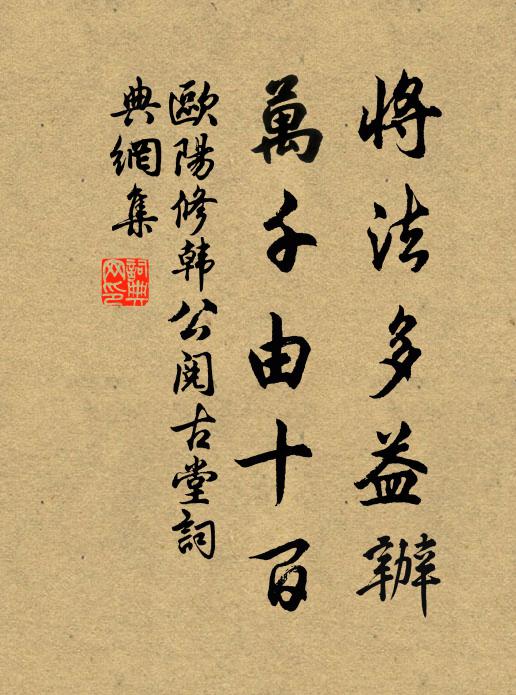 將法多益辦
萬千由十百
歐陽修韩公閱古堂詞
典網集
詞典
网印